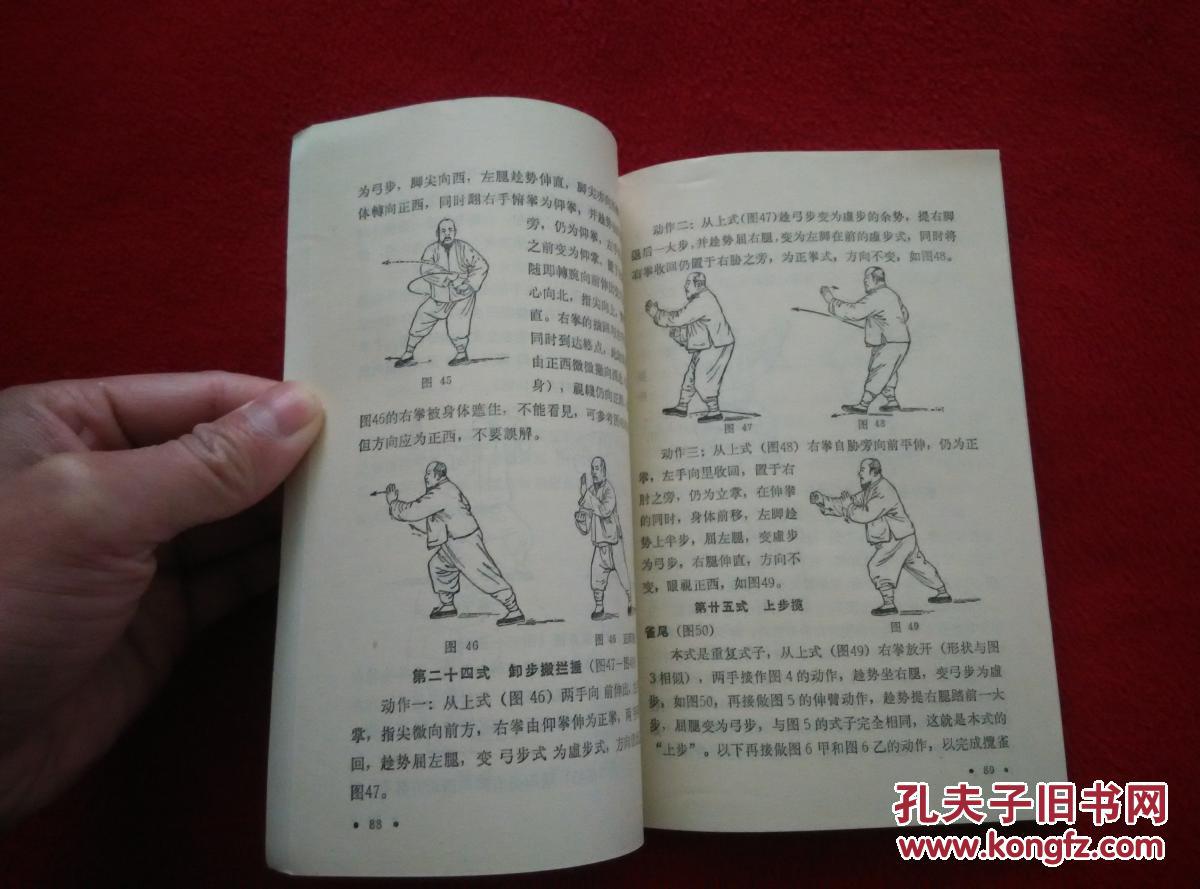 为弓步，脚尖向西，左腿趁势伸直，脚尖亦向
体轉向正西，同时翻右手俯拳为仰拳，并趁势
旁，仍为仰拳，左手
之前变为仰掌，置于
随即轉腕向前伸出
心向北，指尖向上，
直。右拳的抽回与左
同时到达終点，此时
由正西微微撤向西北
身），視線仍向正西
图 45
图46的右拳被身体遮住，不能看見，可参考图
但方向应为正西，不要誤解。
图 46
图 46
第二十四式 卸步搬拦捶（图47—图49
动作一：从上式（图 46）两手向 前伸出，
掌，指尖微向前方，右拳由仰拳伸为正掌，两手
回，趁势屈左腿，变 弓步式 为虛步式，方向
图47。
• 88 •
动作二：从上式(图47)趁弓步变为虛步的余势，提右脚
退后一大步，并趁势屈右腿，变为左脚在前的虛步式，同时将
右拳收回仍置于右胁之旁，为正拳式，方向不变，如图48。
图 47
图 48
动作三：从上式（图48）右拳自胁旁向前平伸，仍为正
拳，左手向里收回，置于右
肘之旁，仍为立掌，在伸拳
的同时，身体前移，左脚趁
势上半步，屈左腿，变虛步
为弓步，右腿伸直，方向不
变，眼視正西，如图49。
图 49
第廿五式 上步揽
雀尾（图50）
本式是重复式子，从上式（图49）右拳放开（形状与图
3相似），两手接作图 4 的动作，趁势坐右腿，变弓步为虛
步，如图50，再接做图 5 的伸臂动作，趁势提右腿踏前一大
步，屈腿变为弓步，与图 5 的式子完全相同，这就是本式的
“上步”。以下再接做图 6 甲和图 6 乙的动作，以完成揽雀
• 89 •
孔夫子旧书网
www.kongfz.com